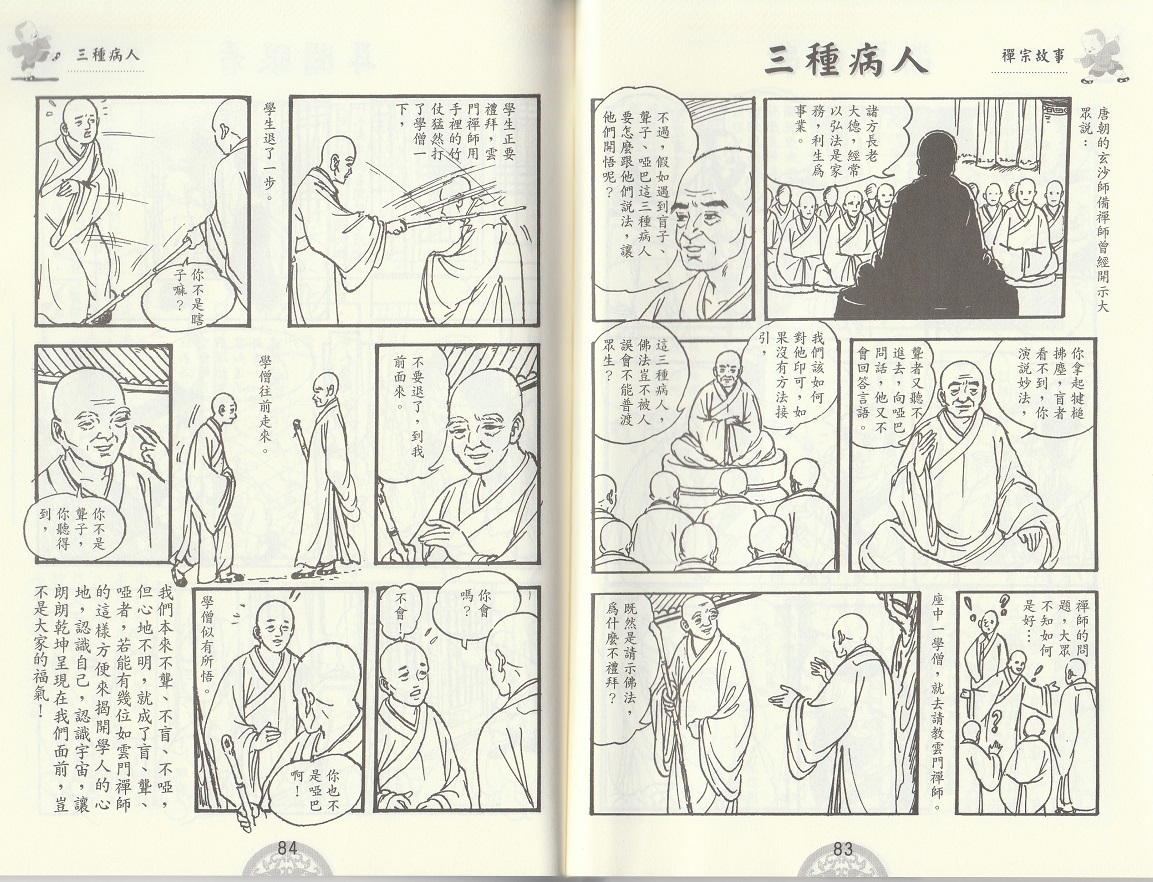 禪宗故事
三種病人
唐朝的玄沙師備禪師曾經開示大
眾說：
諸方長老
大德，經常
以弘法是家
務，利生為
事業。
不過，假如遇到盲子、
聾子、啞巴這三種病人
要怎麼跟他們說法，讓
他們開悟呢？
你拿起犍槌
拂塵，盲者
看不到，你
演說妙法，
聾者又聽不
進去，向啞巴
問話，他又不
會回答言語。
我們該如何
對他印可，如
果沒有方法接
引，
這三種病人，
佛法豈不被人
誤會不能普渡
眾生？
禪師的問
題，大眾
不知如何
是好…
座中一學僧，就去請教雲門禪師。
既然是請示佛法，
為什麼不禮拜？
83
三種病人
學生正要
禮拜，雲
門禪師用
手裡的竹
仗猛然打
了學僧一
下，
學生退了一步。
你不是瞎
子嘛？
不要退了，到我
前面來。
學僧往前走來。
你不是
聾子，
你聽得
到，
你會
嗎？
不會！
學僧似有所悟。
你也不
是啞巴
啊！
我們本來不聾、不盲、不啞，
但心地不明，就成了盲、聾、
啞者，若能有幾位如雲門禪師
的這樣方便來揭開學人的心
地，認識自己，認識宇宙，讓
朗朗乾坤呈現在我們面前，豈
不是大家的福氣！
84